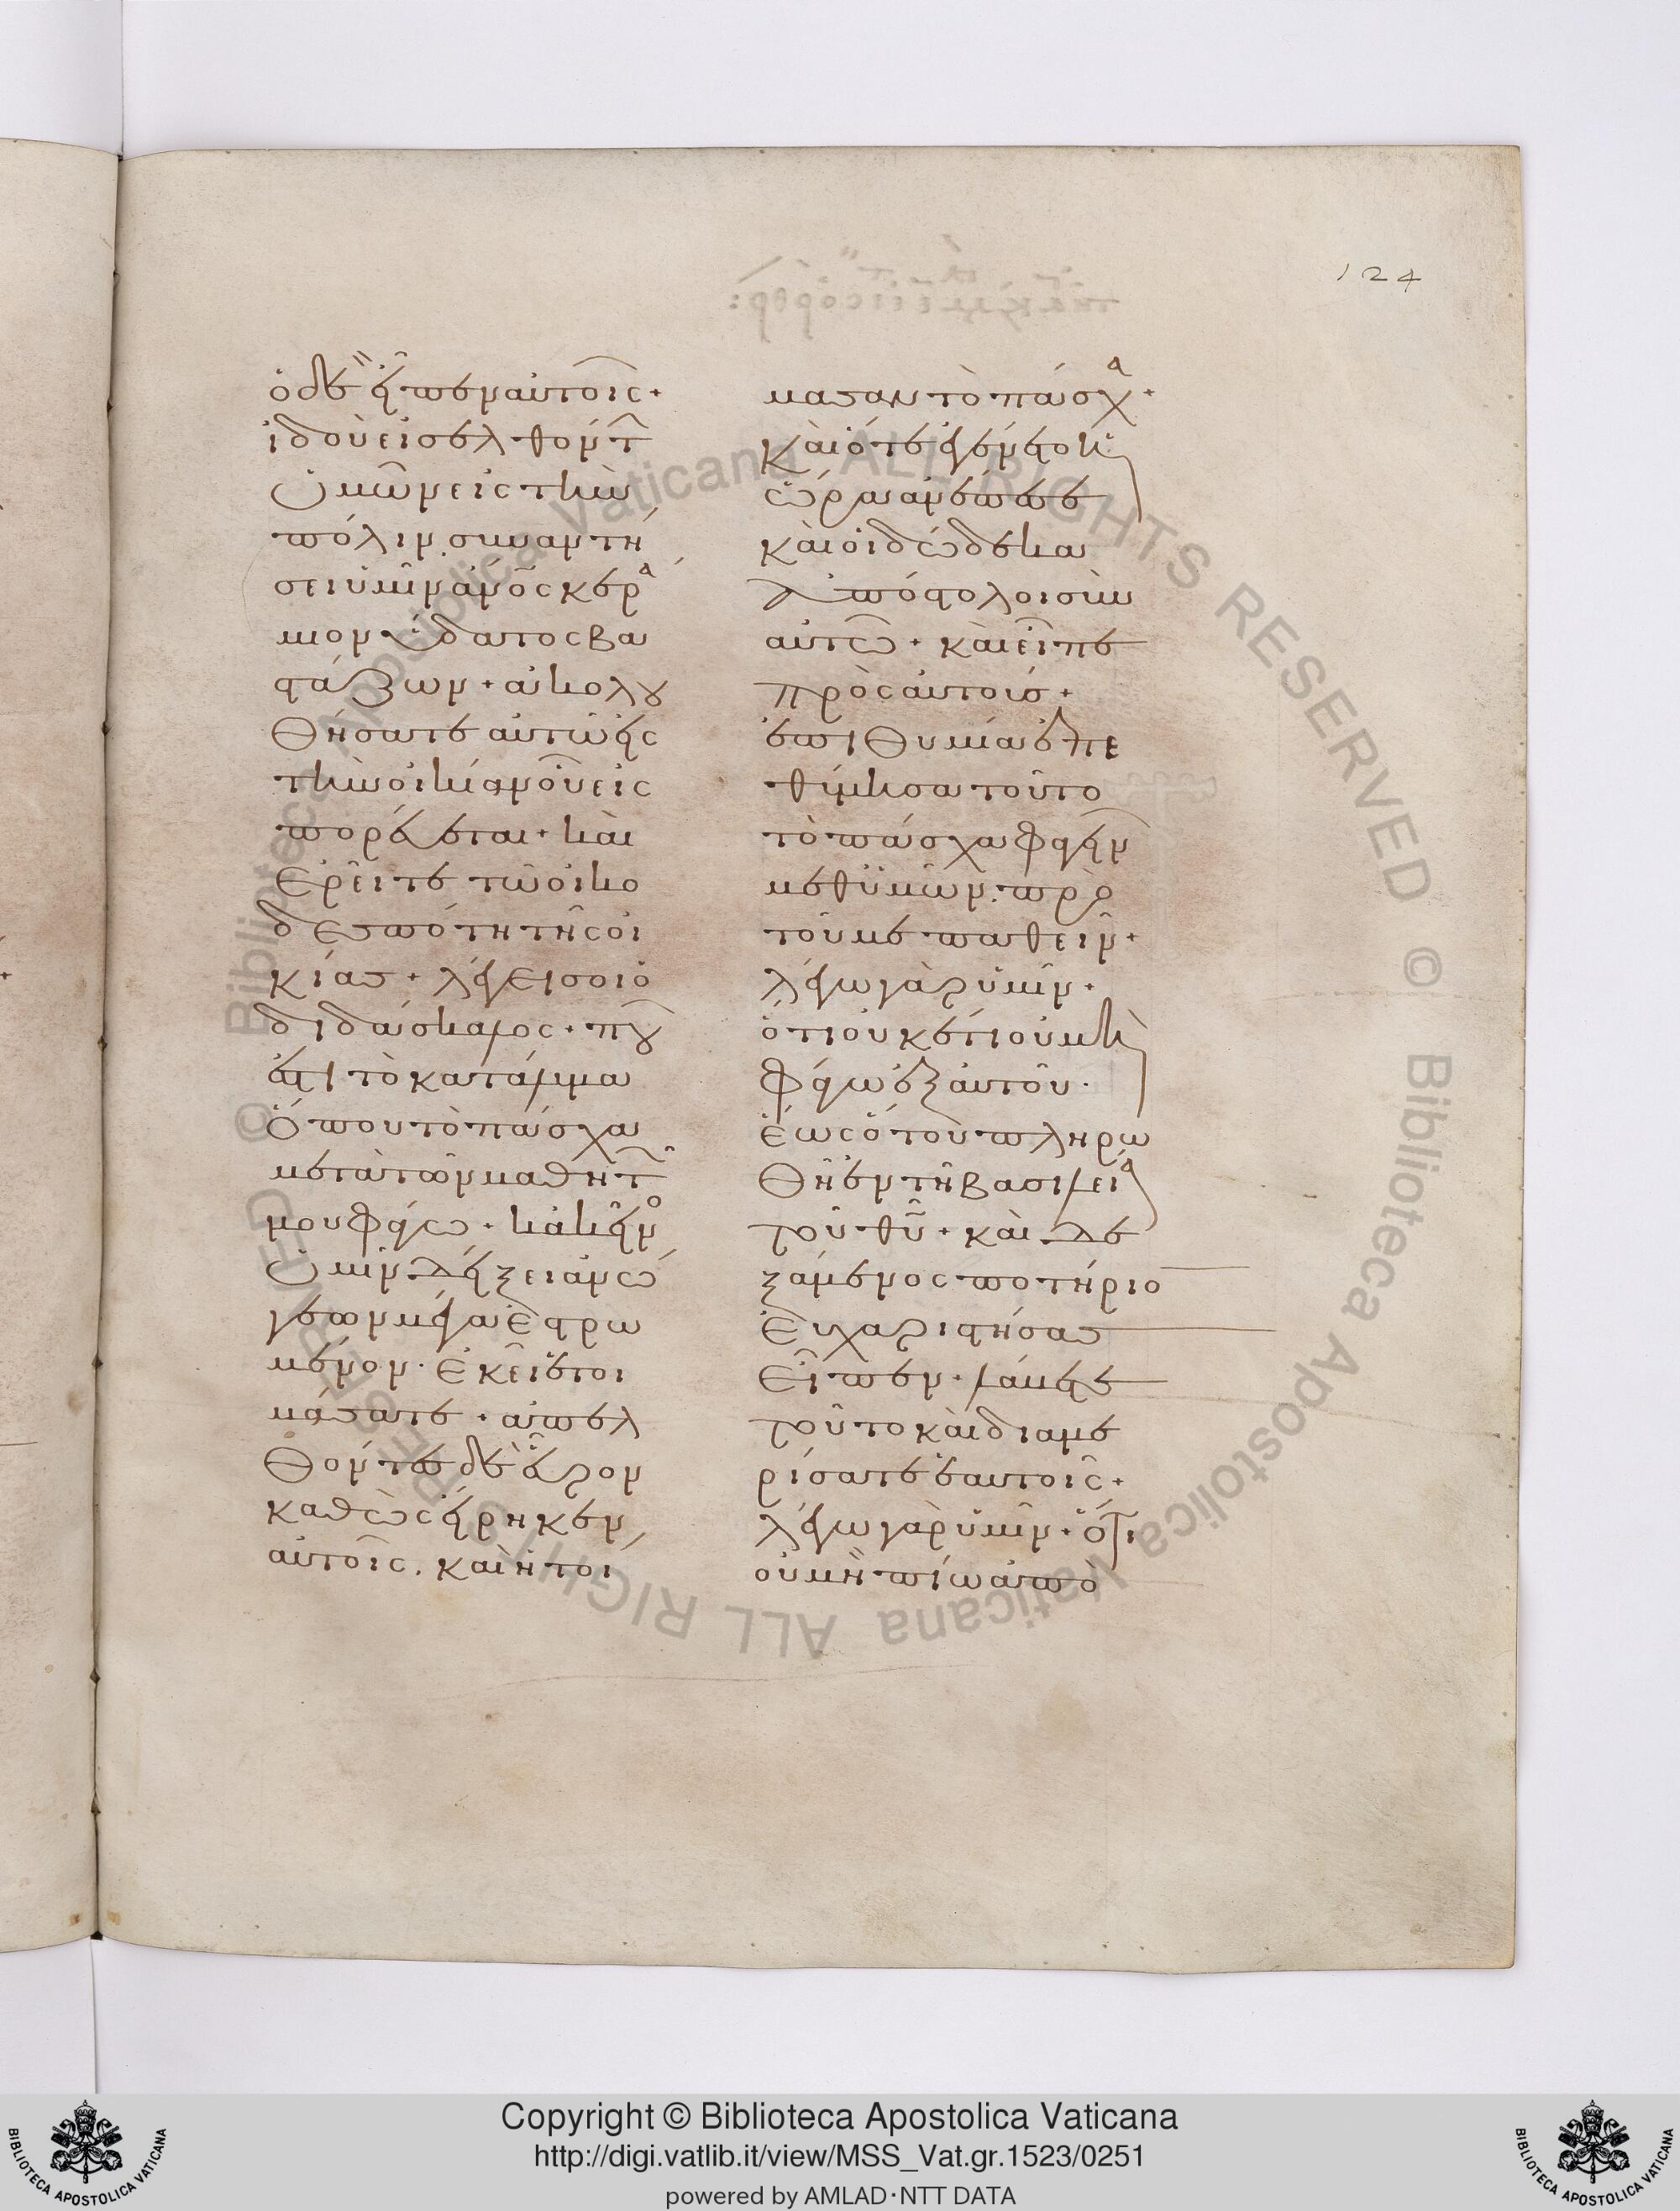 124
ὁ δὲ εἶπεν αὐτοῖς·
ἰδοὺ εἰσελθόντ
ὑμῶν εἰς τὴν
πόλιν. συναντή
σει ὑμῖν ἀν̅ο̅ς κερα
μιον ὕδατος βα
στάζων· ἀκολου
θήσατε αὐτῷ εἰς
τὴν οἰκίαν οὗ εἰσ
πορεύεται· καὶ
ἐρεῖτε τῷ οἰκο
δεσπότη τῆς οἰ
κίας· λέγει σοι ὁ
διδάσκαλος· ποῦ
ἐστι τὸ κατάλυμα
ὅπου τὸ πάσχα
μετὰ τῶν μαθητῶν
μου φάγω· κἀκεῖνο
ὑμῖν δείξει ἀνώ
γεων μέγα ἐστρω
μένον· ἐκεῖ ἑτοι
μάσατε· ἀπελ
θόντες δὲ εὗρον
καθὼς εἴρηκεν
αὐτοῖς. καὶ ἡτοί
μασαν τὸ πάσχα·
καὶ ὅτε ἐγένετο ἡ
ὥρα ἀνέπεσε
καὶ οἱ δώδεκα
ἀπόστολοι σὺν
αὐτῷ· καὶ εἶπε
πρὸς αὐτούς·
ἐπιθυμία ἐπε
θύμησα τοῦτο
τὸ πάσχα φαγεῖν
μεθ ὑμῶν. πρὸ
τοῦ με παθεῖν·
λέγω γὰρ ὑμῖν·
ὅτι οὐκέτι οὐ μὴ
φάγω ἐξ αὐτοῦ.
ἕως ὅτου πληρω
θῆ ἐν τῆ βασιλεία
τοῦ θ̅υ̅· καὶ δε
ξάμενος ποτήριο
εὐχαριστήσας
εἶπεν· λάβετε
τοῦτο καὶ διαμε
ρίσατε ἑαυτοῖς·
λέγω γὰρ ὑμῖν· ὅτι
οὐ μὴ πίω ἀπὸ
Copyright © Biblioteca Apostolica Vaticana
http://digi.vatlib.it/view/MSS_Vat.gr.1523/0251
powered by AMLAD·NTT DATA
BIBLIOTECA APOSTOLICA VATICANA
BIBLIOTECA APOSTOLICA VATICANA
© Biblioteca Apostolica Vaticana ALL RIGHTS RESERVED © Biblioteca Apostolica Vaticana ALL RIGHTS RESERVED